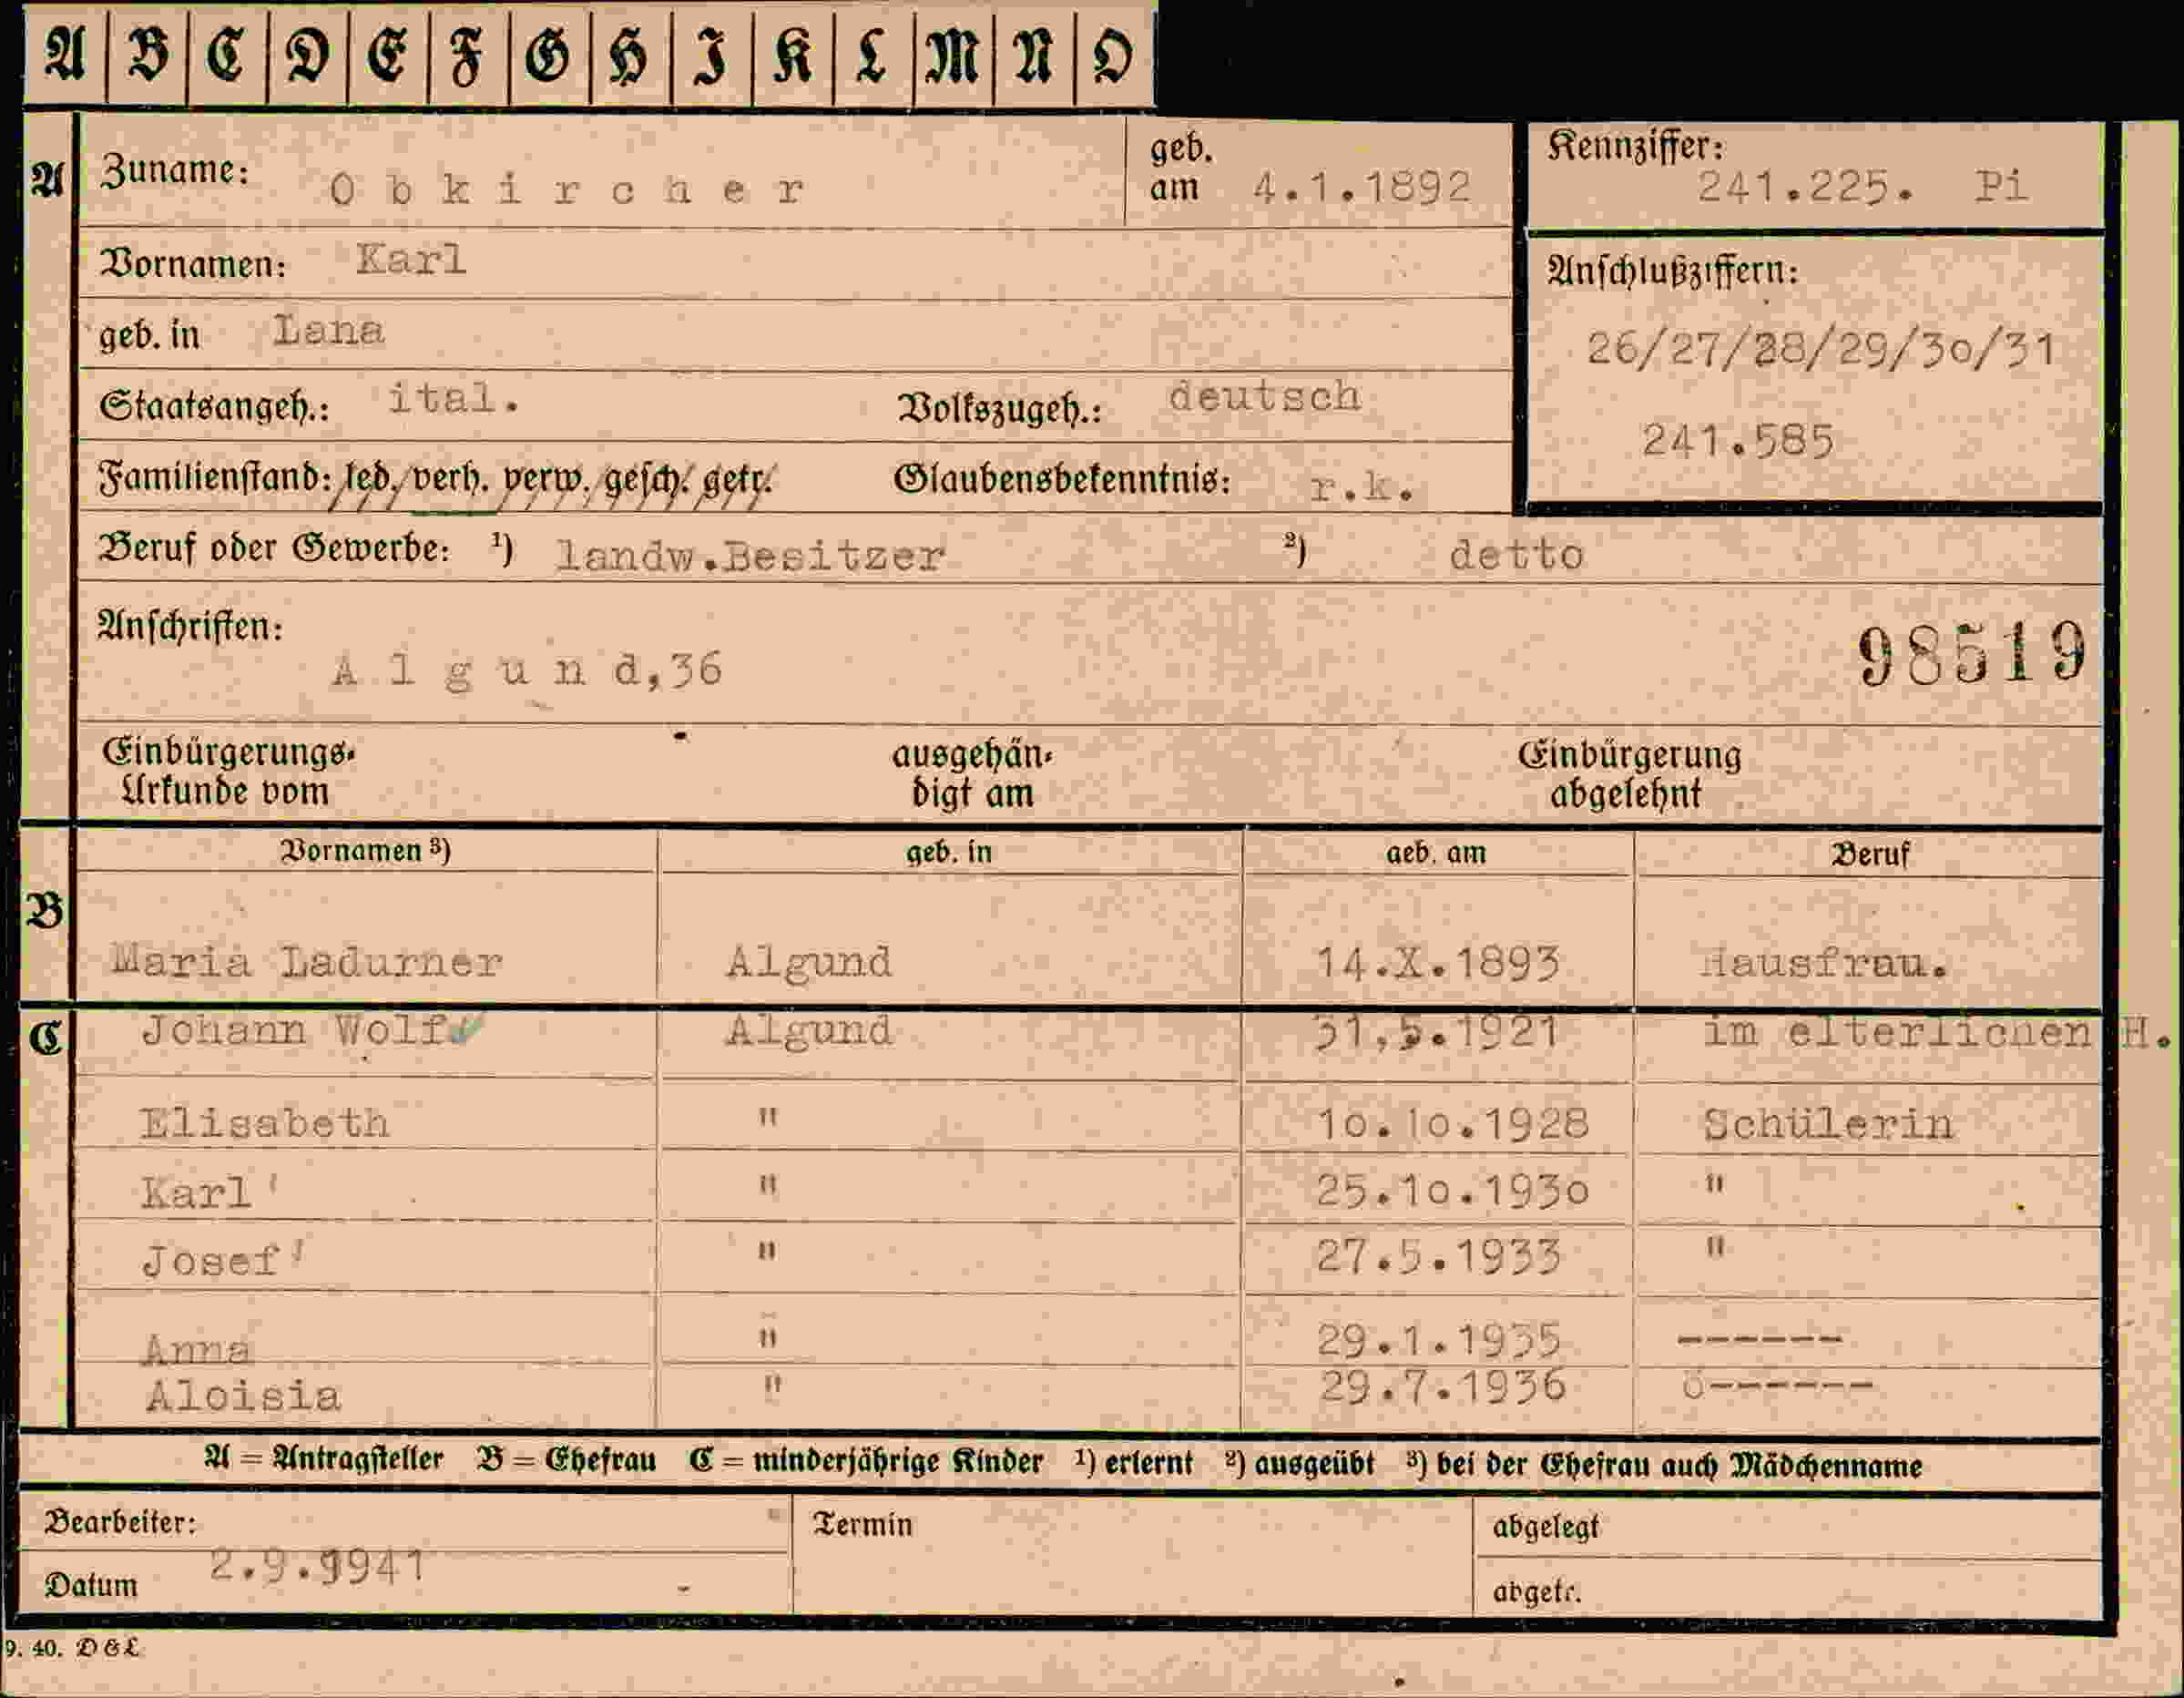 A B C D E F G H I K L M N O
A Zuname: Obkircher geb. am 4.1.1892 Kennziffer: 241.225. Pi
Vornamen: Karl
Anschlußziffern:
geb. in Lana
26/27/28/29/30/31
Staatsangeh.: ital. Volkszugeh.: deutsch
241.585
Familienstand: led. verh. verw. gesch. getr. Glaubensbekenntnis: r.k.
Beruf oder Gewerbe: ¹) landw.Besitzer ²) detto
Anschriften:
Algund,36 98519
Einbürgerungs- ausgehän- Einbürgerung
Urkunde vom digt am abgelehnt
Vornamen ³) geb. in geb. am Beruf
B
Maria Ladurner Algund 14.X.1893 Hausfrau.
C Johann Wolf Algund 31,5.1921 im elterlichen H.
Elisabeth " 10.10.1928 Schülerin
Karl " 25.10.1930 "
Josef " 27.5.1933 "
Anna " 29.1.1935 ------
Aloisia " 29.7.1936 ö------
A = Antragsteller B = Ehefrau C = minderjährige Kinder ¹) erlernt ²) ausgeübt ³) bei der Ehefrau auch Mädchenname
Bearbeiter: Termin abgelegt
Datum 2.9.9941 abgetr.
9. 40. D&L